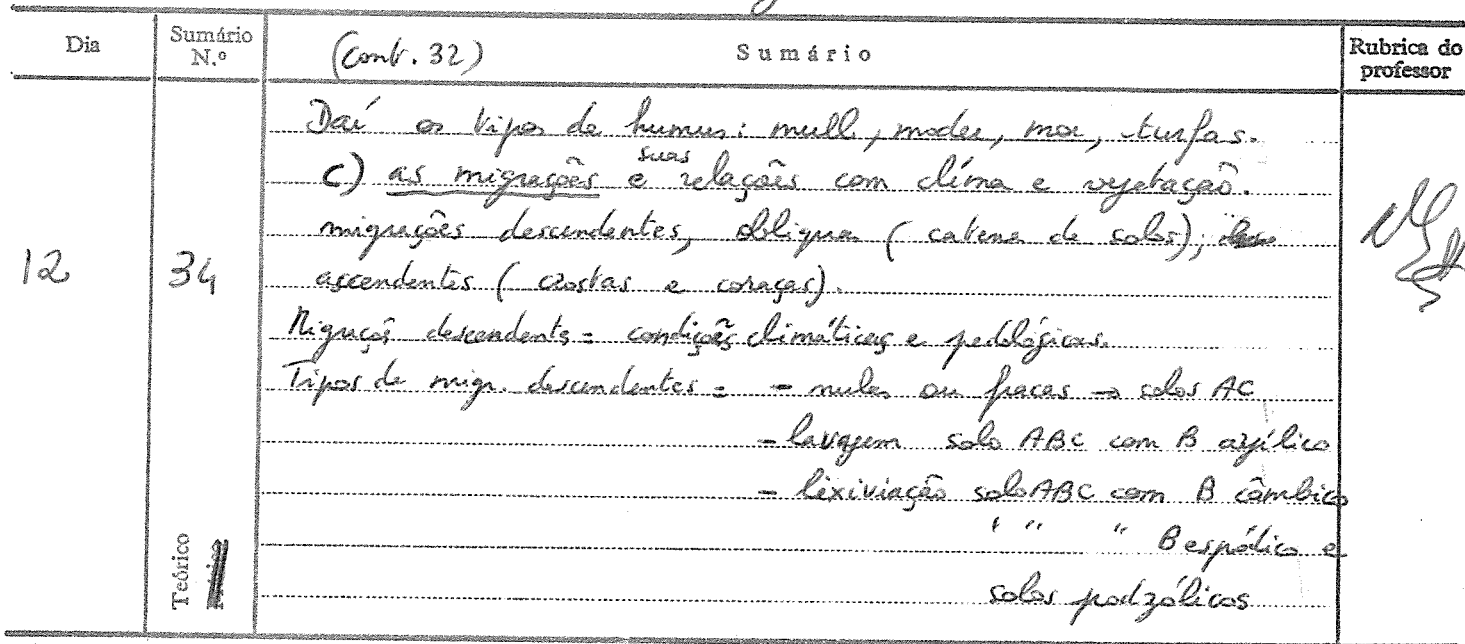 Dia
Sumário N.º
(Cont. 32)
Sumário
Rubrica do professor
Daí os tipos de humus: mull, moder, mor, turfas.
c) as migrações e suas relações com clíma e vegetação.
migrações descendentes, obliquas (catena de solos),
ascendentes (crostas e coraças).
12
34
Migraçõs descendents = condições climáticas e pedológicas.
Tipos de migr. descendentes = - nulas ou fracas → solos AC
- lavagem solo ABC com B argílico
- lixiviação solo ABC com B câmbico
" " " B espódico e
solos podzólicos
Teórico